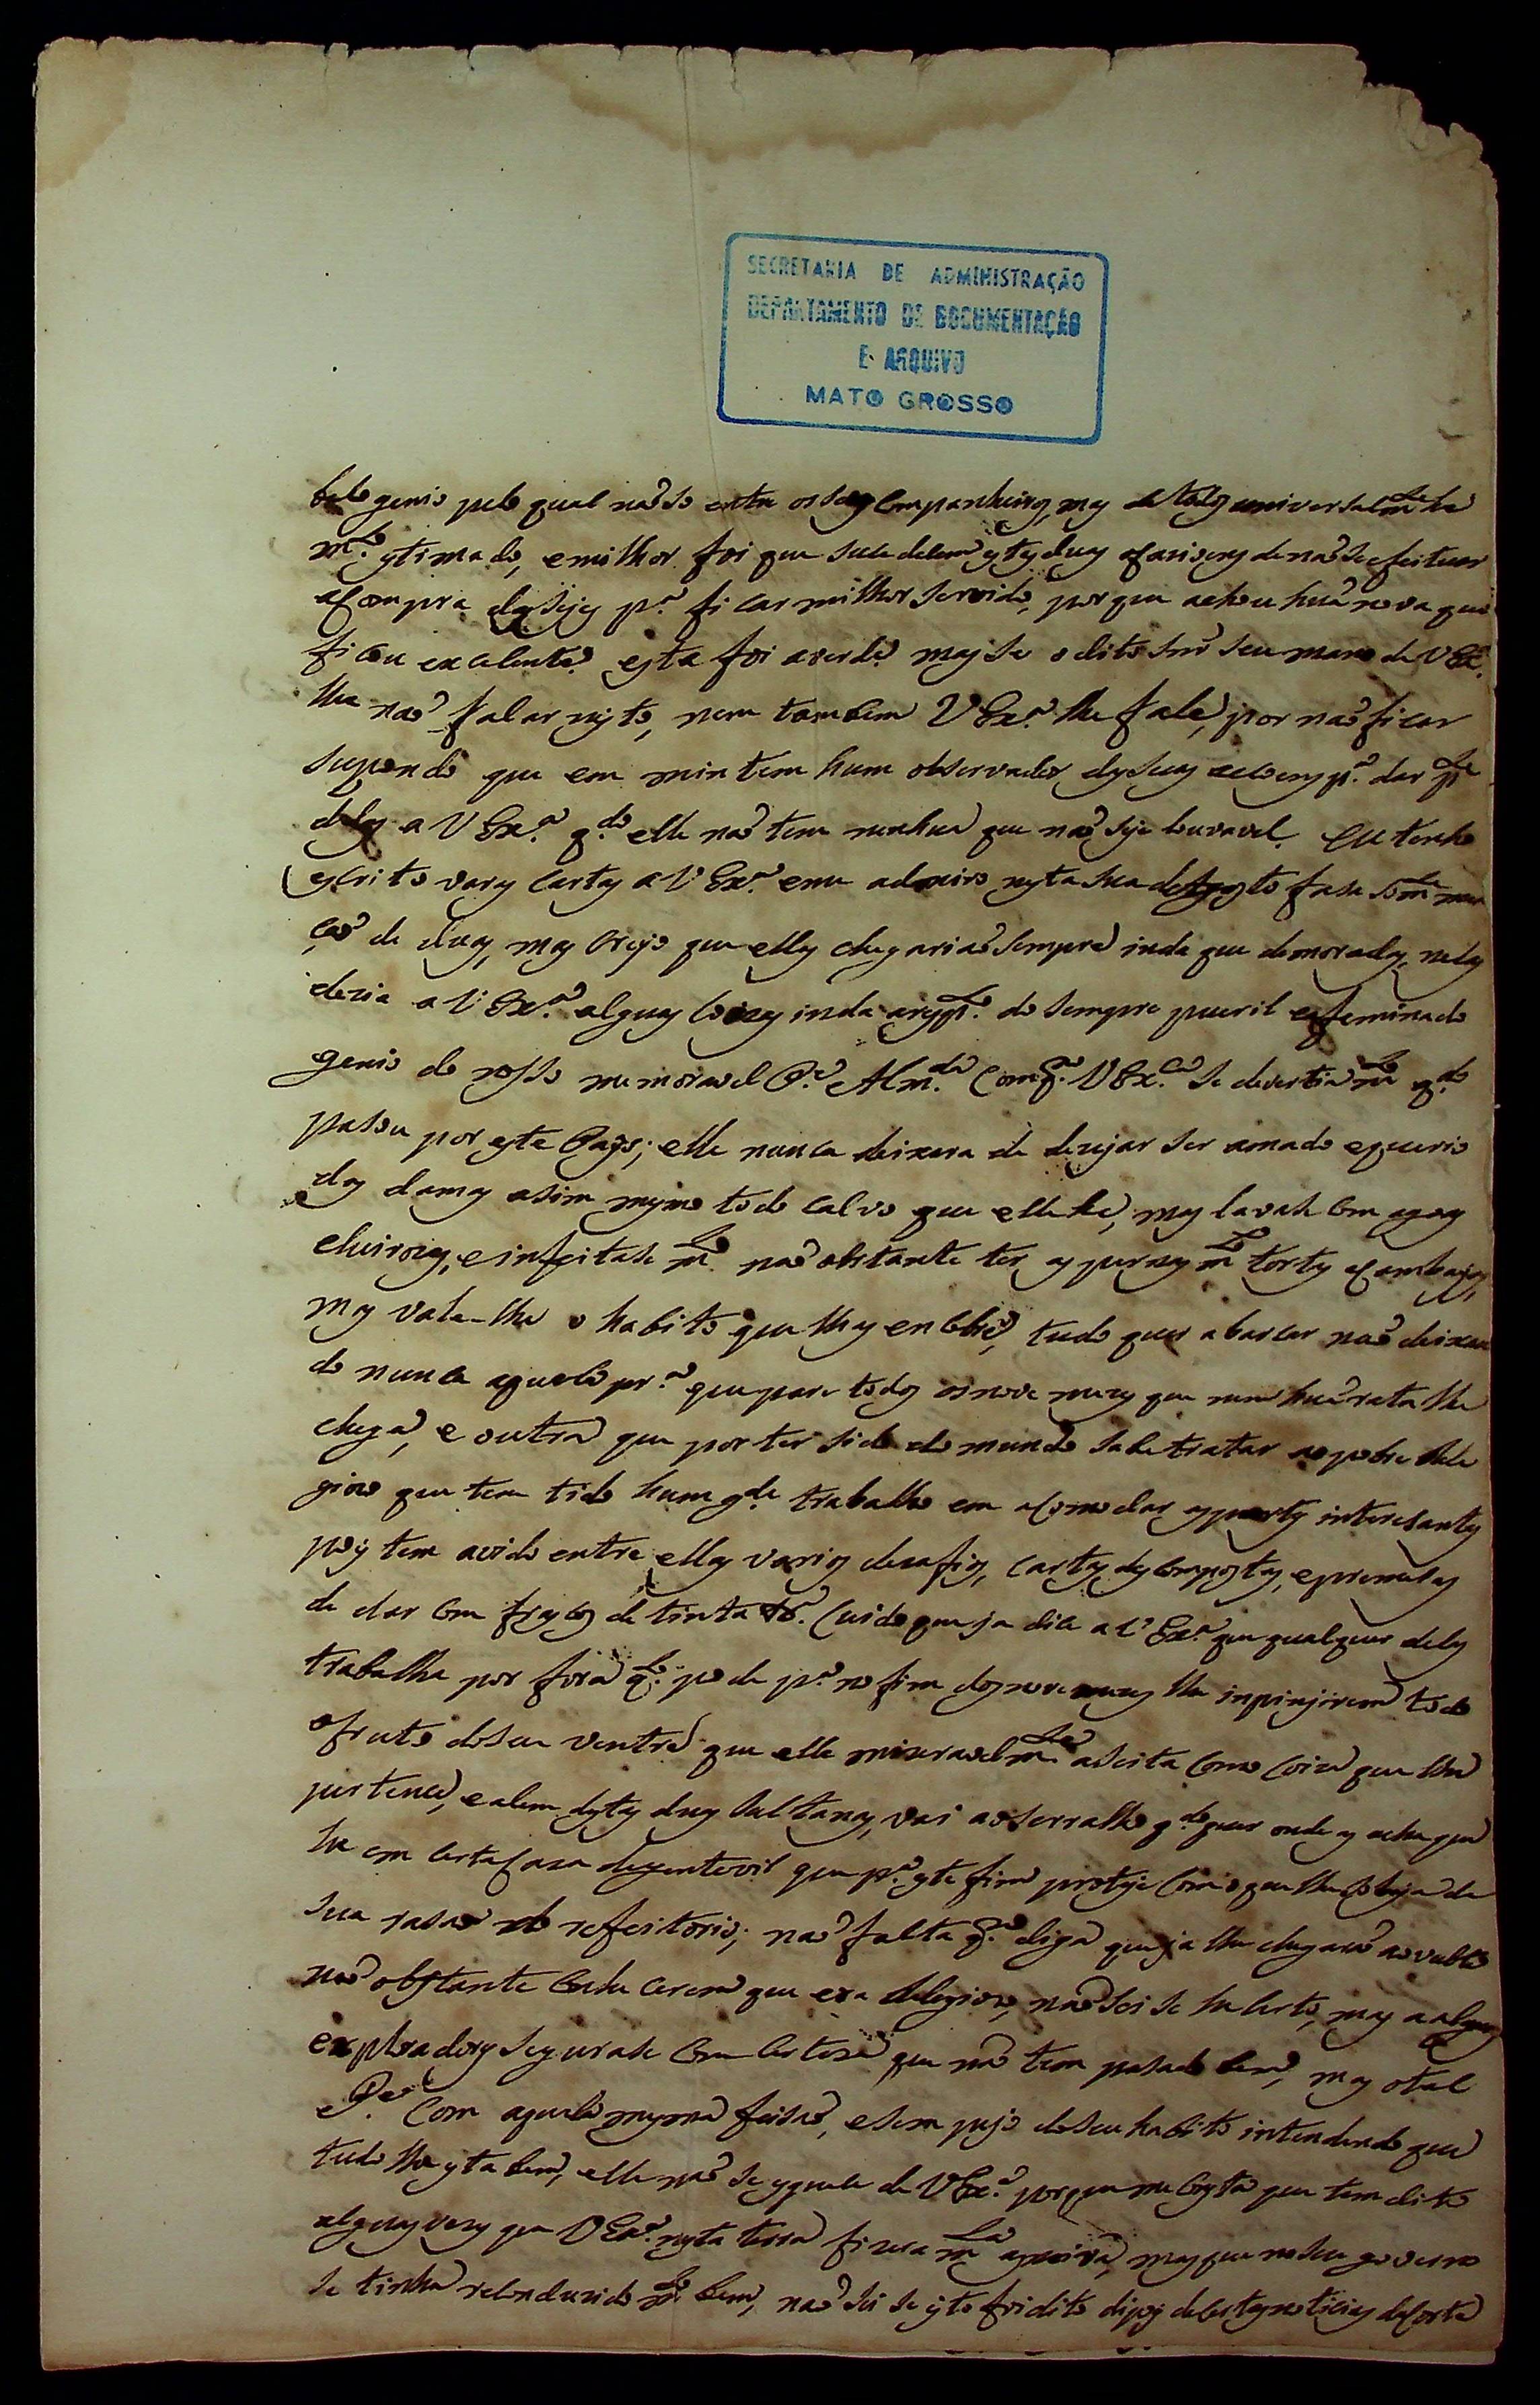 SECRETARIA DE ADMINISTRAÇÃO
DEPARTAMENTO DE DOCUMENTAÇÃO
E ARQUIVO
MATO GROSSO
belo genio pelo qual naõ só entre os seus companheiros, mas de todos universalm.te he
m.to estimado, e milhor foi que sucedesem estas duas ocasioens de naõ se efeituar
a compra das p.a ficar milhor servido, porque achou huã nova que
ficou excelente. esta foi a verd.e mas se o dito snr seu mano de V Ex.a
lhe naõ falar nisto, nem tambem V Ex.a lhe fale, por naõ ficar
supondo que em mim tem hum observador das suas acoens p.a dar p.te
delas a V Ex.a q.do elle naõ tem nenhuã que naõ seja louvavel. Eu tenho
escrito varias cartas a V Ex.a e me admiro nesta sua de fasa som.te men
çaõ de duas, mas creyo que ellas chegariaõ sempre inda que demoradas, nelas
dezia a V Ex.a alguas coizas inda a resp.to do sempre pueril efeminado
genio do nosso memoravel P.e Alm.da com q.m V Ex.ca se devertia m.to q.do
pasou por este Pays; elle nunca deixara de dezejar ser amado e querido
das damas asim mesmo todo calvo que elle he, mas lavase com agoas
cheirozas, e infeitase m.to naõ obstante ter as pernas m.to tortas e cambayas,
mas vale-lhe o habito que lhas encobre, tudo quer abarcar naõ deixan
do nunca aquela pr.a que pare todos os nove mezes que nem huã rata lhe
chega, e outra que por ter sido do mundo sabe tratar ao pobre Rele
giozo que tem tido hum g.de trabalho em acomodar as partes interesantes
pois tem avido entre ellas varios desafios, cartas descompostas, e promesas
de dar com frascos de tinta &.a Cuido que ja dice a V Ex.a que qualquer delas
trabalha por fora q.to pode p.a no fim dos nove mezes lhe inpinjirem todo
o fruto do seu ventre que elle mizeravelm.te aseita como coiza que lhe
pertence, e alem destas duas Sultanas, vai ao serralho q.do quer onde as acha que
he em certa caza de gente vil que p.a este fim proteje com o que lhe sobeja da
sua rasaõ do refeitorio; naõ falta q.m diga que ja lhe chegaraõ ao vulto
naõ obstante conhecerem que era Relegiozo, naõ sei se he certo, mas a alguns
exploradores segurase com certeza que naõ tem pasado bem, mas o tal
P.e com aquela mesma feisaõ, e sem pejo do seu habito intendendo que
tudo lhe esta bem, elle naõ se esquece de V Ex.a porque me consta que tem dito
alguas vezes que V Ex.a nesta terra fizera m.ta asneira, mas que no seu governo
se tinha reconduzido m.to bem, naõ sei se isto foi dito dipois de certas noticias da Corte